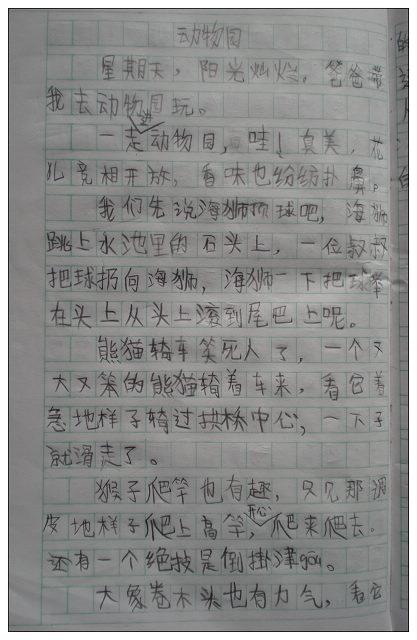 动物园
星期天，阳光灿烂，爸爸带
我去动物园玩。
一走进动物园，哇！真美，花
儿竞相开放，香味也纷纷扑鼻。
我们先说海狮顶球吧，海狮
跳上水池里的石头上，一位叔叔
把球扔向海狮，海狮一下把球举
在头上从头上滚到尾巴上呢。
熊猫骑车笑死人了，一个又
大又笨的熊猫骑着车来，看它着
急地样子骑过拱桥中心，一下子
就滑走了。
猴子爬竿也有趣，只见那调
皮地样子开心爬上高竿，爬来爬去。
还有一个绝技是倒掛津gōu。
大象卷木头也有力气，看它